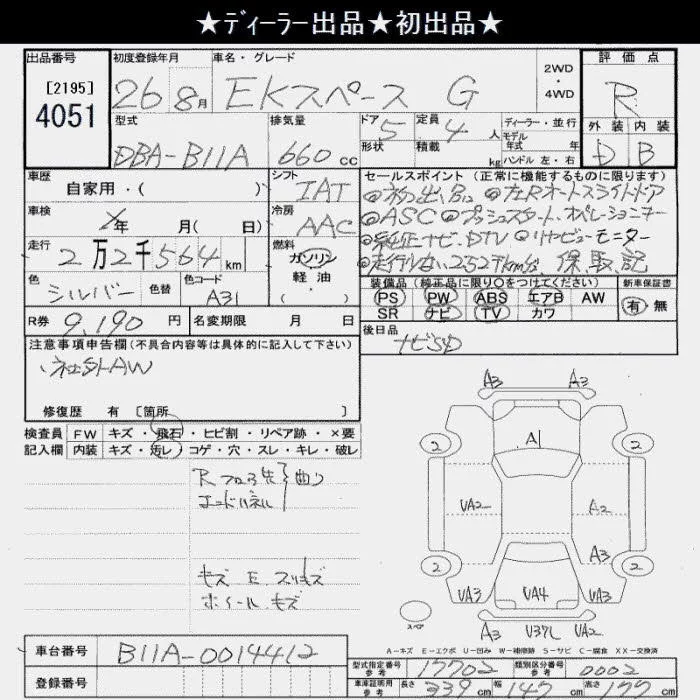 ★ディーラー出品★初出品★
出品番号 初度登録年月 車名・グレード 2WD ・ 4WD 評価点
[2195]
4051
26 8月 EKスペース G R
型式 排気量 ドア 5 定員 4 人 ディーラー・並行 外装 内装
形状 積載 kg モデル年式 年 ハンドル 左・右
DBA-B11A 660 cc D B
車歴 自家用・( ) シフト IAT
セールスポイント (正常に機能するものに限ります)
◎初出品 ◎左Rオートスライドドア
車検 年 月( 日) 冷房 AAC
◎ASC ◎プッシュスタート
◎純正ナビ、DTV ◎リヤビューモニター
走行 2万2千564 km 燃料 ガソリン 軽油 ・( )
保取記
色 シルバー 色替 色コード A31
装備品 (純正品に限り○をつけてください) 新車保証書
PS PW ABS エアB AW 有・無
SR ナビ TV カワ
R券 9,190 円 名変期限 月 日
後日品
ナビSD
注意事項申告欄(不具合内容等は具体的に記入して下さい)
社外AW
修復歴 有 [箇所 ]
検査員 FW キズ・飛石・ヒビ割・リペア跡・×要
記入欄 内装 キズ・汚レ・コゲ・穴・スレ・キレ・破レ
Rフロア先
エンドパネル 曲り
キズ E スリキズ
ホイールキズ
A3 A3
2 A1 2
UA2 A2
A3
2 2
UA3 UA4 UA3
スペア
A3 U37L UA2
A-キズ E-エクボ U-凹み W-補修跡 S-サビ C-腐食 XX-交換済
車台番号 B11A-0014412
登録番号
型式指定番号 参考 17702 類別区分番号 参考 0002
車庫証明用 参考 長さ 339 cm 幅 147 cm 高さ 177 cm